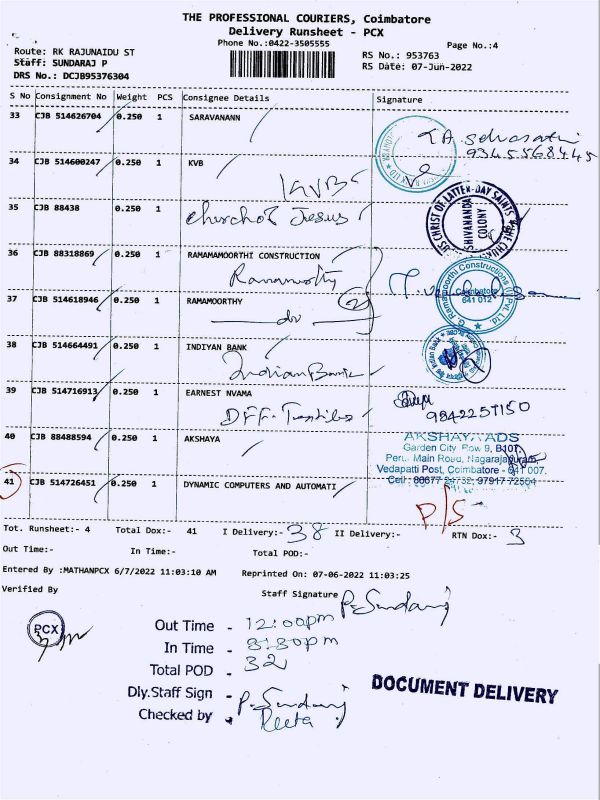 THE PROFESSIONAL COURIERS, Coimbatore
Delivery Runsheet - PCX
Phone No.:0422-3505555
Page No.:4
Route: RK RAJUNAIDU ST
RS No.: 953763
Staff: SUNDARAJ P
RS Date: 07-Jun-2022
DRS No.: DCJB95376304
S No Consignment No Weight PCS Consignee Details Signature
33 CJB 514626704 0.250 1 SARAVANANN
9345568445
34 CJB 514600247 0.250 1 KVB
KVB
35 CJB 88438 0.250 1
Church of Jesus
US CHRIST OF LATTER-DAY SAINTS
SHIVANANDA
COLONY
36 CJB 88318869 0.250 1 RAMAMAMOORTHI CONSTRUCTION
G. Ramamoorthi Constructions (I) Pvt. Ltd
Coimbatore
641 012
37 CJB 514618946 0.250 1 RAMAMOORTHY
do
2
38 CJB 514664491 0.250 1 INDIYAN BANK
Indian Bank
39 CJB 514716913 0.250 1 EARNEST NVAMA
9842251150
40 CJB 88488594 0.250 1 AKSHAYA
AKSHAYA ADS
Garden City, Row 9, B107,
Peru Main Road, Nagarajapuram,
Vedapatti Post, Coimbatore - 641 007.
41 CJB 514726451 0.250 1 DYNAMIC COMPUTERS AND AUTOMATI
P/S
Tot. Runsheet:- 4 Total Dox:- 41 I Delivery:- 38 II Delivery:- RTN Dox:- 3
Out Time:- In Time:- Total POD:-
Entered By :MATHANPCX 6/7/2022 11:03:10 AM Reprinted On: 07-06-2022 11:03:25
Verified By
Staff Signature P. Sundaraj
PCX
Out Time - 12:00pm
In Time - 8:30pm
Total POD - 32
Dly.Staff Sign - P. Sundaraj
Checked by - Reeta
DOCUMENT DELIVERY